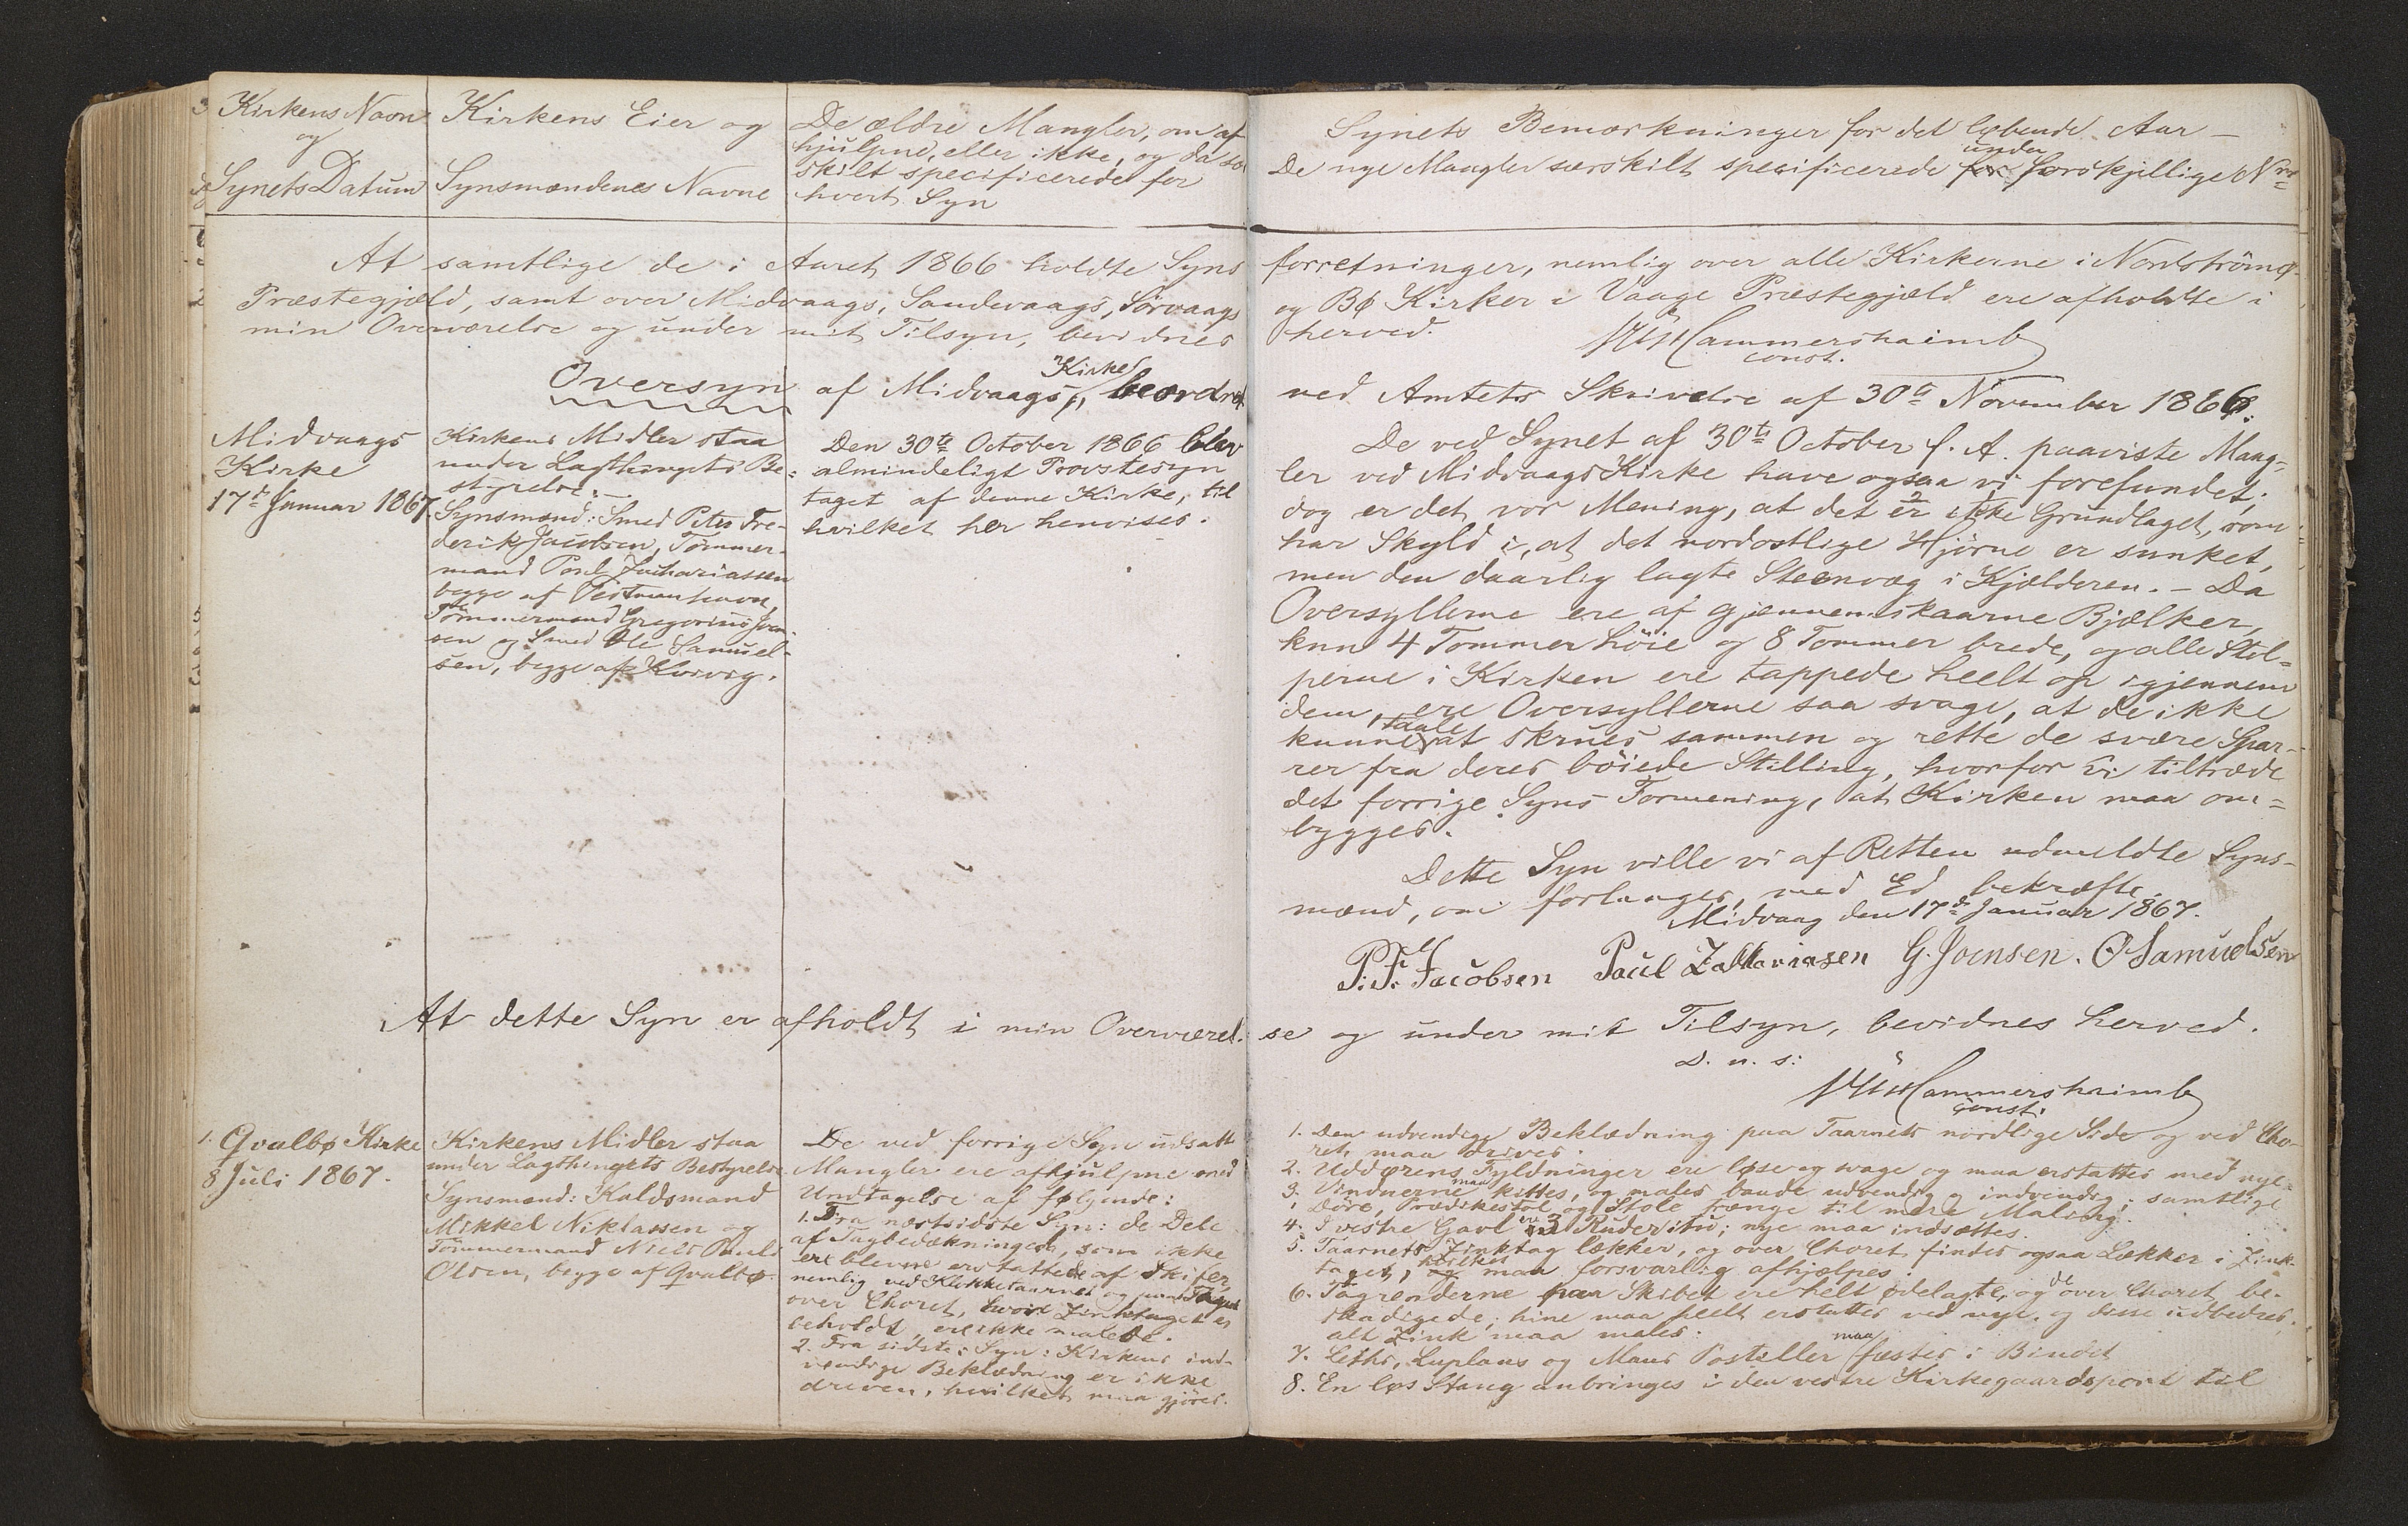 Kirkens Navn
og
Synets Datum
Kirkens Eier og
Synsmændenes Navne
De ældre Mangler, om af-
hjulpne, eller ikke, og da sær
skilt specificerede for
hvert Syn
Synets Bemærkninger for det løbende Aar –
De nye Mangler særskilt specificerede for under forskjellige Nre
At samtlige de i Aaret 1866 holdte Syns
Præstegjæld, samt over Midvaags, Sandevaags, Sørvaags
min Overværelse og under mit Tilsyn, bevidnes
forretninger, nemlig over alle Kirkerne i Nordstrømø
og Bø Kirker i Vaagø Præstegjæld ere afholdte i
herved.
Hammershaimb
const.
Oversyn af Midvaags Kirke, beordret
ved Amtets Skrivelse af 30te November 1866.
Midvaags
Kirke
17de Januar 1867.
Kirkens Midler staa
under Lagthingets Be-
styrelse. –
Synsmænd: Smed Peter Fre-
derik Jacobsen, Tømmer-
mand Poul Zachariassen
begge af Thorshavn,
Tømmermand Gregorius Joen-
sen og Smed Ole Samuel-
sen, begge af Kvivig.
Den 30te October 1866 blev
almindeligt Provstesyn
taget af denne Kirke, til
hvilket her henvises.
De ved Synet af 30te October f. A. paaviste Mang-
ler ved Midvaags Kirke have ogsaa vi forefundet;
dog er det vor Mening, at det er ikke Grundlaget, som
har Skyld i, at det nordostlige Hjørne er sunket,
men den daarlig lagte Steenvæg i Kjælderen. – Da
Oversyllerne ere af gjennemskaarne Bjælker,
kun 4 Tommer høie og 8 Tommer brede, og alle Stol-
perne i Kirken ere tappede heelt op igjennem
dem, ere Oversyllerne saa svage, at de ikke
kunne taale at skrues sammen og rette de svære Spar-
rer fra deres bøiede Stilling, hvorfor vi tiltræde
det forrige Syns Formening, at Kirken maa om-
bygges.
Dette Syn ville vi af Retten udmeldte Syns-
mænd, om forlanges, med Ed bekræfte.
Midvaag den 17de Januar 1867.
P. F. Jacobsen Paul Zakkariasen G. Joensen. O Samuelsen
At dette Syn er afholdt i min Overværel-
se og under mit Tilsyn, bevidnes herved.
D. u. s:
Hammershaimb
const.
1. Qvalbø Kirke
8 Juli 1867.
Kirkens Midler staa
under Lagthingets Bestyrelse.
Synsmænd: Kaldsmand
Mikkel Niklassen og
Tømmermand Niels Pauli
Olsen, begge af Qvalbø.
De ved forrige Syn udsatte
Mangler ere afhjulpne med
Undtagelse af følgende:
1. Fra næstsidste Syn: de Dele
af Tagbedækningen, som ikke
ere blevne erstattede af Skifer,
nemlig ved Klokketaarnet og paa Taget
over Choret, hvor Zinktaget er
beholdt, ere ikke malede.
2. Fra sidste Syn: Kirkens ind-
vendige Beklædning er ikke
dreven, hvilket maa gjøres.
1. Den udvendige Beklædning paa Taarnets nordlige Side og ved Cho-
ret, maa drives.
2. Uddørens Fyldninger ere løse og svage og maa erstattes med nye.
3. Vinduerne maa kittes, og males baade udvendig og indvendig; samtlige
Døre, Prædikestol og Stole trænge til mere Maling.
4. I vestre Gavl ere 3 Ruder itu; nye maa indsættes.
5. Taarnets Zinktag lækker, og over Choret findes ogsaa Lækker i Zink-
taget, og hvilket maa forsvarlig afhjælpes.
6. Tagrenderne paa Skibet ere helt ødelagte, og de over Choret be-
skadigede; hine maa heelt erstattes ved nye og disse udbedres,
alt Zink maa males.
7. Leths, Luplaus og Maus Postiller maa fæstes i Bindet
8. En løs Stang anbringes i den vestre Kirkegaardsport til